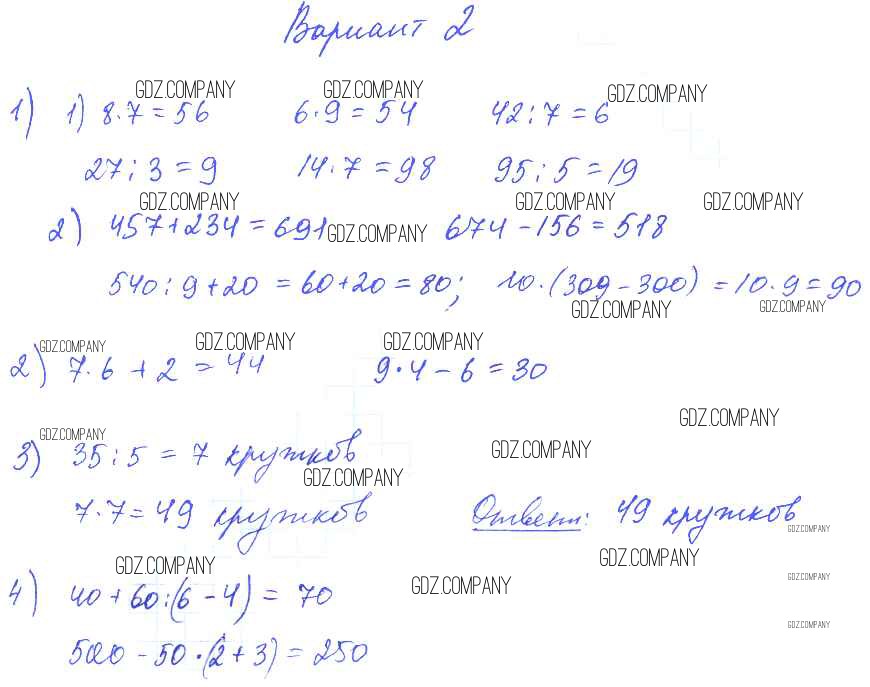 Вариант 2
GDZ.COMPANY GDZ.COMPANY GDZ.COMPANY
1) 1) 8·7=56 6·9=54 42:7=6
27:3=9 14·7=98 95:5=19
GDZ.COMPANY GDZ.COMPANY GDZ.COMPANY
2) 457+234=691 GDZ.COMPANY 674-156=518
540:9+20=60+20=80; 10·(309-300)=10·9=90
GDZ.COMPANY GDZ.COMPANY
GDZ.COMPANY GDZ.COMPANY GDZ.COMPANY
2) 7·6+2=44 9·4-6=30
GDZ.COMPANY
GDZ.COMPANY GDZ.COMPANY
3) 35:5=7 кружков
GDZ.COMPANY
7·7=49 кружков Ответ: 49 кружков
GDZ.COMPANY
GDZ.COMPANY GDZ.COMPANY
GDZ.COMPANY GDZ.COMPANY
4) 40+60:(6-4)=70
GDZ.COMPANY
500-50·(2+3)=250